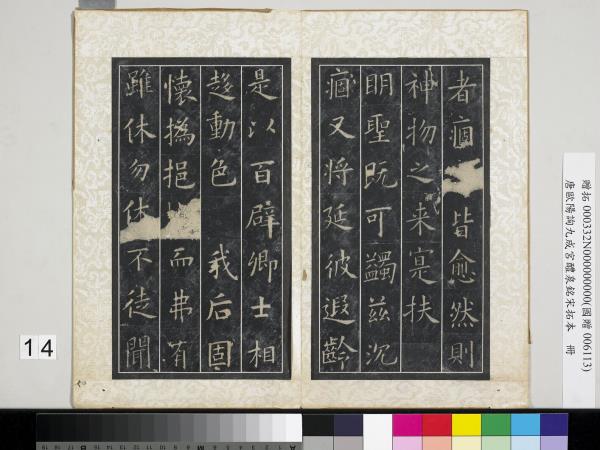 者痼皆愈然則
神物之来寔扶
明聖既可蠲兹沉
痼又将延彼遐齡
是以百辟卿士相
趍動色我后固
懷撝挹而弗有
雖休勿休不徒聞
贈拓 000332N000000000(國贈 006113)
唐歐陽詢九成宮醴泉銘宋拓本 冊
14